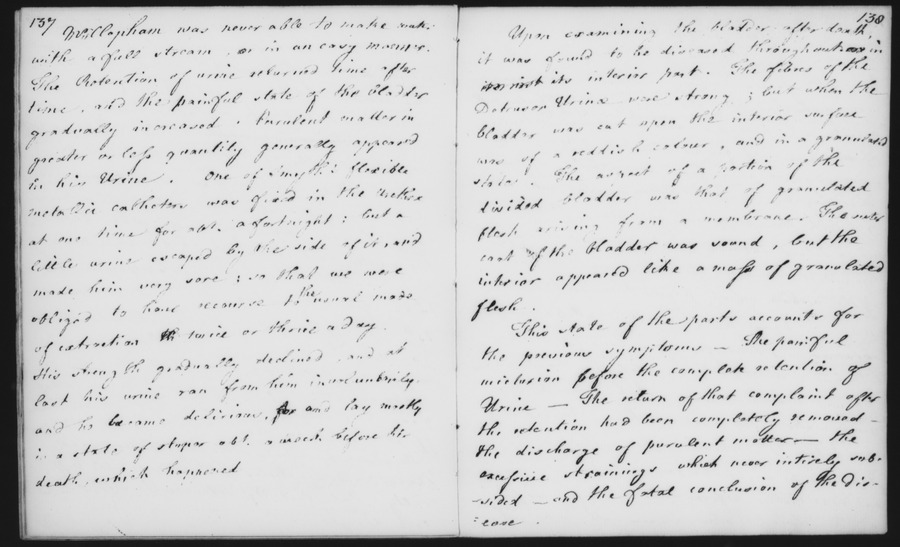 137
Willapham was never able to make water
with a full stream, or in an easy manner.
The Retention of urine returned time after
time, and the painful state of the bladder
gradually increased. Purulent matter in
greater or less quantity generally appeared
in his Urine. One of Smyth's flexible
metallic catheters was fixed in the urethra
at one time for abt. a fortnight; but a
little urine escaped by the side of it, and
made him very sore; so that we were
obliged to have recourse to the usual mode
of extraction twice or thrice a day.
His strength gradually declined, and at
last his urine ran from him involuntarily,
and he became delirious, and lay mostly
in a state of stupor abt. a week before his
death, which happened
138
Upon examining the bladder after death,
it was found to be diseased throughout in
its interior part. The fibres of the
Detrusor Urinæ were strong; but when the
bladder was cut open the interior surface
was of a reddish colour, and in a granulated
state. The aspect of a portion of the
divided bladder was that of granulated
flesh arising from a membrane. The outer
coat of the bladder was sound, but the
interior appeared like a mass of granulated
flesh.
This state of the parts accounts for
the previous symptoms — The painful
micturion before the complete retention of
Urine — The return of that complaint after
the retention had been completely removed —
the discharge of purulent matter — the
excessive strainings which never intirely sub-
-sided — and the fatal conclusion of the dis-
-ease.